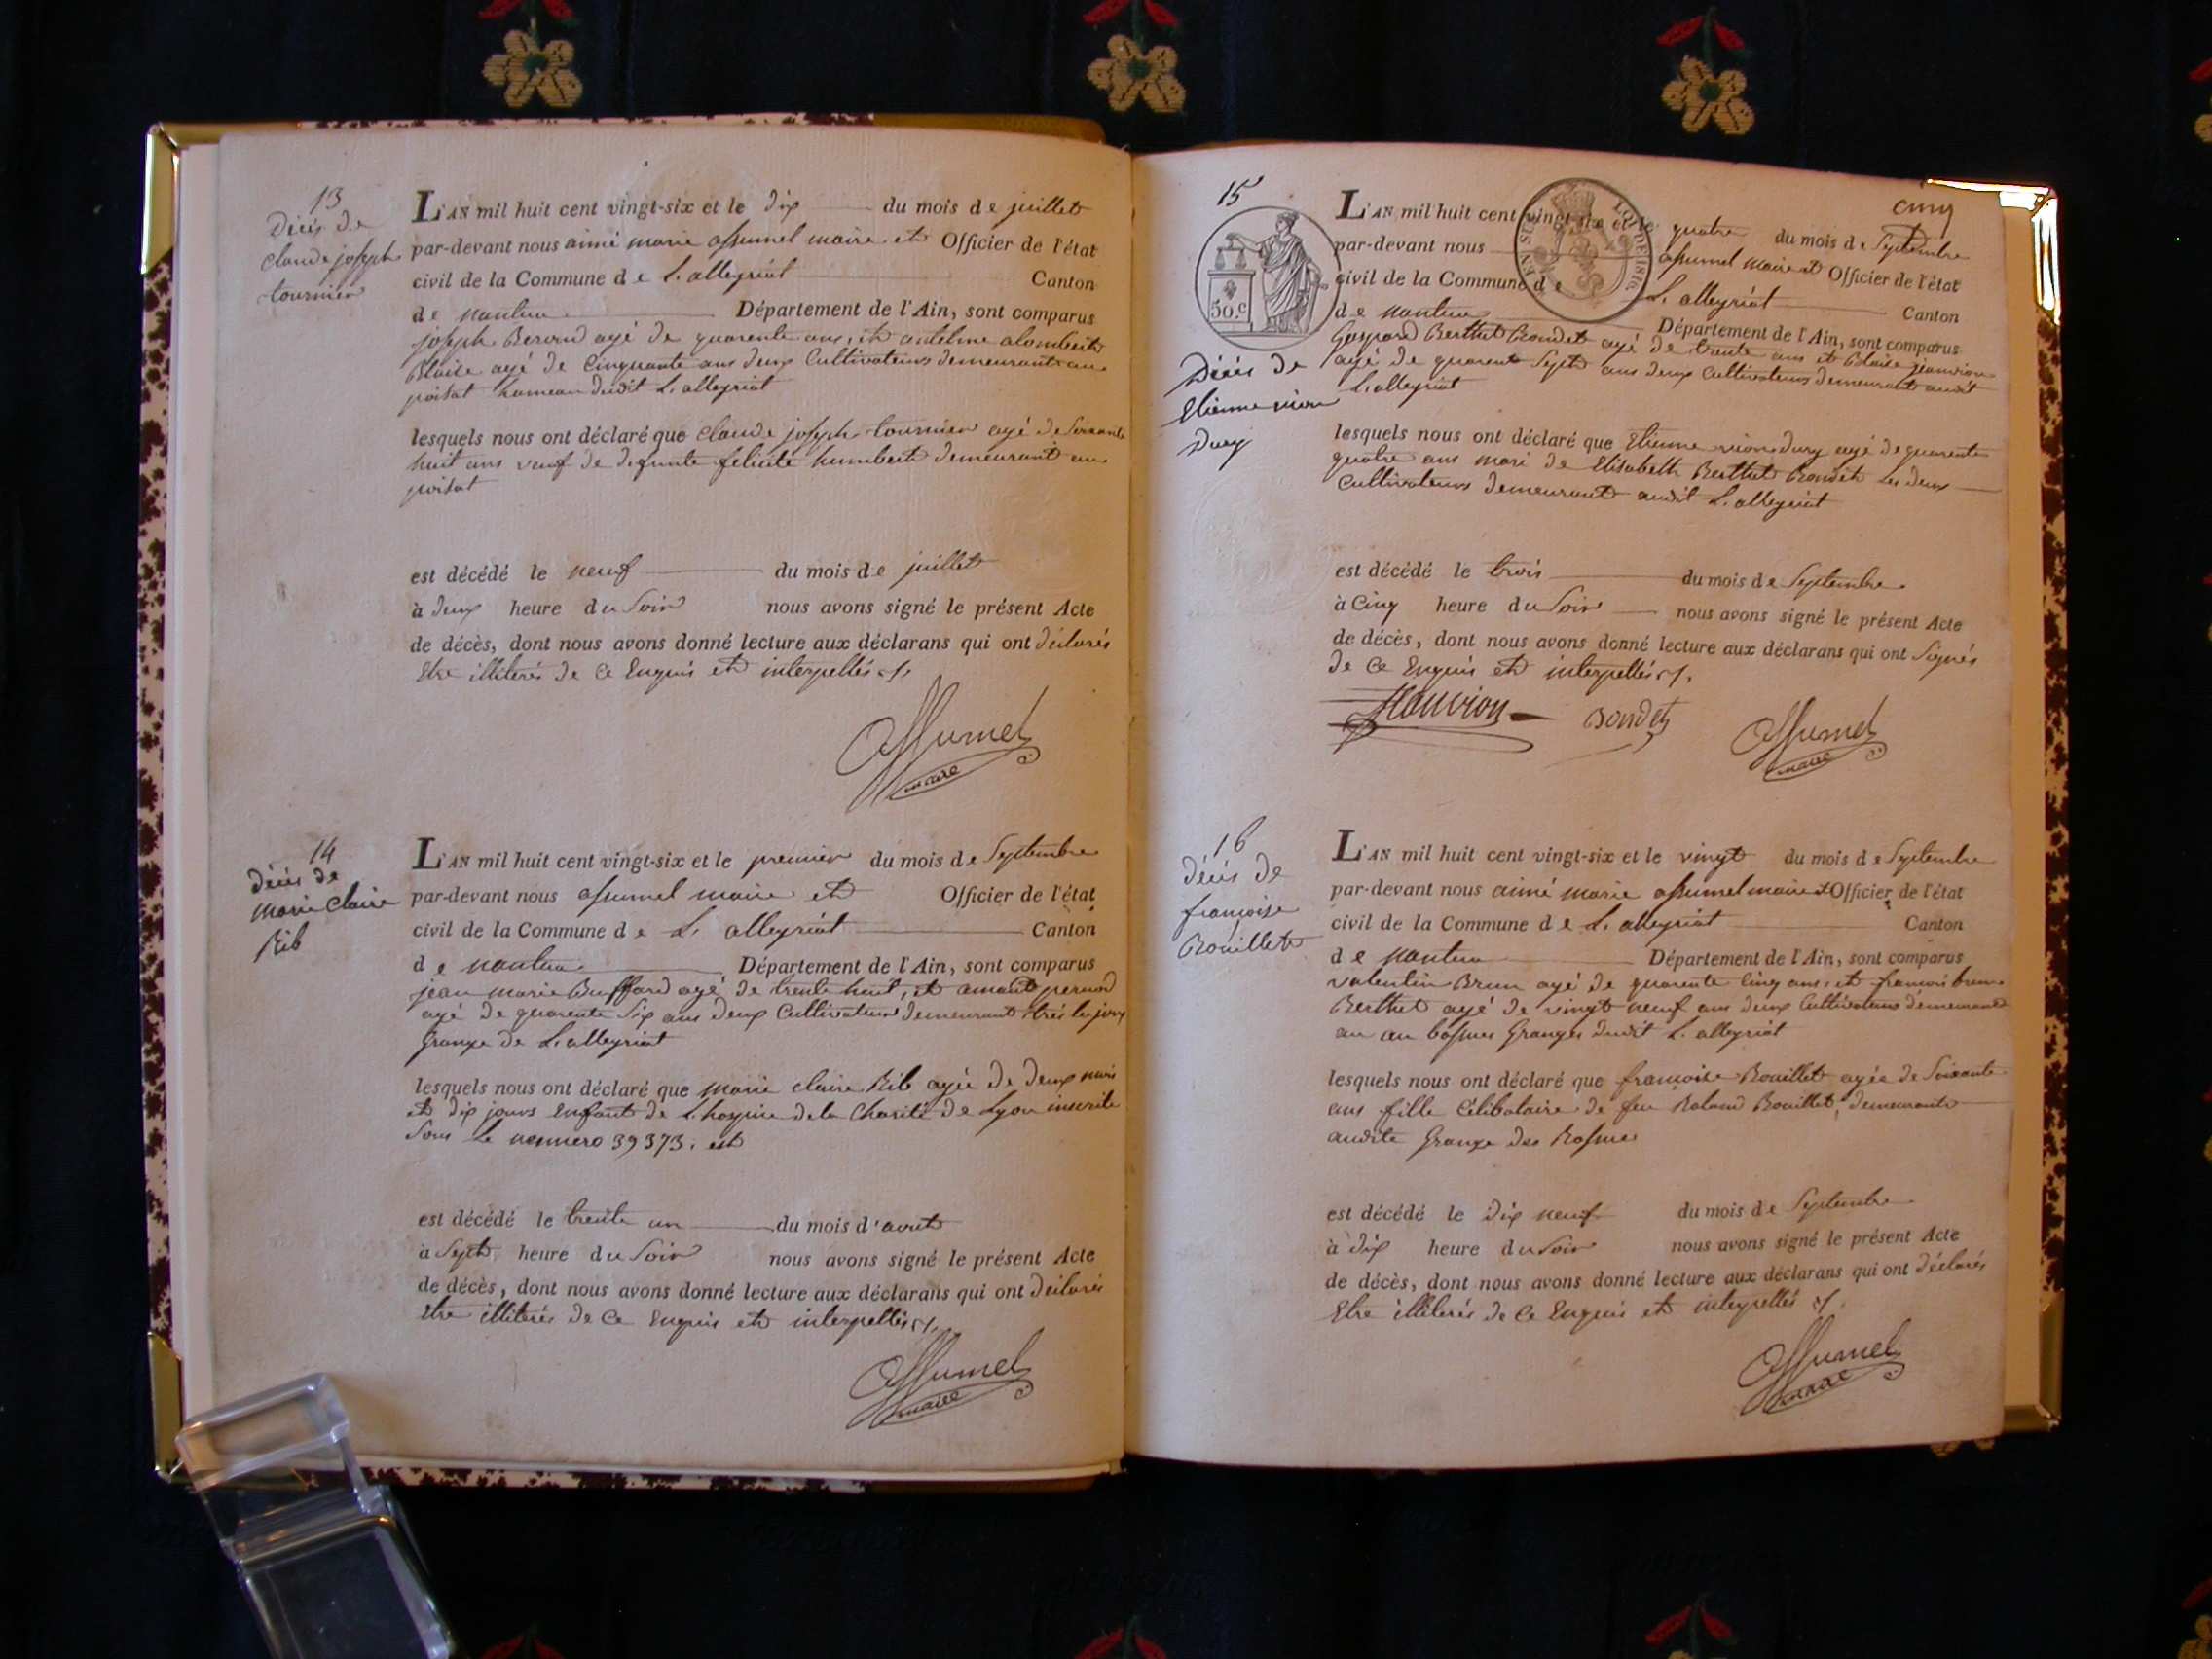 13
Décès de
Claude joseph
tournier
L'AN mil huit cent vingt-six et le dix du mois de juillet
par-devant nous aimé marie assumel maire et Officier de l'état
civil de la Commune de L. alleyriat Canton
de nantua Département de l'Ain, sont comparus
joseph Berod agé de quarente ans, et antelme alombert
Blaise agé de Cinquante ans deux Cultivateurs demeurant au
poisat hameau dudit L. alleyriat
lesquels nous ont déclaré que Claude joseph tournier agé de Soixante
huit ans veuf de defunte felicité humbert demeurant au
poisat
est décédé le neuf du mois de juillet
à deux heure du Soir nous avons signé le présent Acte
de décès, dont nous avons donné lecture aux déclarans qui ont déclarés
Etre illiterés de Ce Enquis et interpellés
Assumel
maire
14
décès de
marie Claire
Rib
L'AN mil huit cent vingt-six et le premier du mois de Septembre
par-devant nous assumel maire et Officier de l'état
civil de la Commune de L. alleyriat Canton
de nantua Département de l'Ain, sont comparus
jean marie Buffard agé de trente huit, et amant pernod
agé de quarente Six ans deux Cultivateurs demeurant
Grange de L. alleyriat
lesquels nous ont déclaré que marie claire Rib agée de deux mois
et dix jours Enfant de L. hospice de la Charité de Lyon inscrite
Sous Le nommero 39373. est
est décédé le trente un du mois d'aout
à Sept heure du Soir nous avons signé le présent Acte
de décès, dont nous avons donné lecture aux déclarans qui ont déclarés
Etre illiterés de Ce Enquis et interpellés
Assumel
maire
cinq
15
50.c
EN SUS LOI DE 1816
Décès de
Etienne nion
Dury
L'AN mil huit cent vingt-six et le quatre du mois de Septembre
par-devant nous assumel maire et Officier de l'état
civil de la Commune de L. alleyriat Canton
de nantua Département de l'Ain, sont comparus
Gaspard Berthet Bondet agé de trente ans et Blaise
agé de quarente Sept ans deux Cultivateurs demeurant audit
L. alleyriat
lesquels nous ont déclaré que Etienne nion dury agé de quarente
quatre ans mari de Elisabeth Berthet Bondet Les deux
Cultivateurs demeurant audit L. alleyriat
est décédé le trois du mois de Septembre
à Cinq heure du Soir nous avons signé le présent Acte
de décès, dont nous avons donné lecture aux déclarans qui ont Signés
de Ce Enquis et interpellés
Bondet
Assumel
maire
16
décès de
françoise
Bouillet
L'AN mil huit cent vingt-six et le vingt du mois de Septembre
par-devant nous aimé marie assumel maire et Officier de l'état
civil de la Commune de L. alleyriat Canton
de nantua Département de l'Ain, sont comparus
valentin Brun agé de quarente Cinq ans, et françois
Berthet agé de vingt neuf ans deux Cultivateurs demeurant
au Granges dudit L. alleyriat
lesquels nous ont déclaré que françoise Bouillet agée de Soixante
ans fille Célibataire de feu Roland Bouillet, demeurante
audite Grange des
est décédé le dix neuf du mois de Septembre
à dix heure du Soir nous avons signé le présent Acte
de décès, dont nous avons donné lecture aux déclarans qui ont déclarés
Etre illiterés de Ce Enquis et interpellés
Assumel
maire